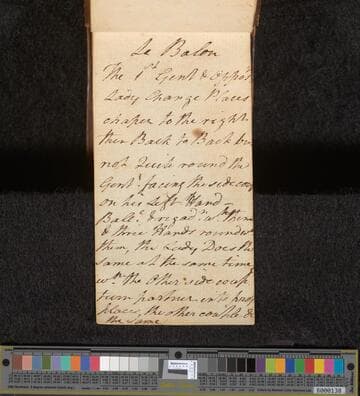 Le Balon
The 1st Gent & Oppost
Lady Change Places
chaper to the right
then Back to Back but
not Quite round the
Gentn. facing the side coup
on his Left Hand -
Balce. & rigadn. wth. them
& three Hands round wth
them, the Lady Does the
same at the same time
wth. the Other side coup
turn partner into proper
place, the other couple do
the same